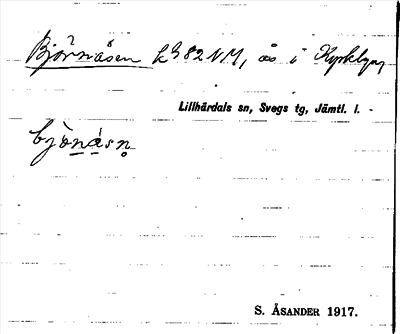 Björnåsen L982 NM, ås i Kyrkbyn,
Lillhärdals sn, Svegs tg, Jämtl. l.
bjo̱ná̱sn̥
S. ÅSANDER 1917.